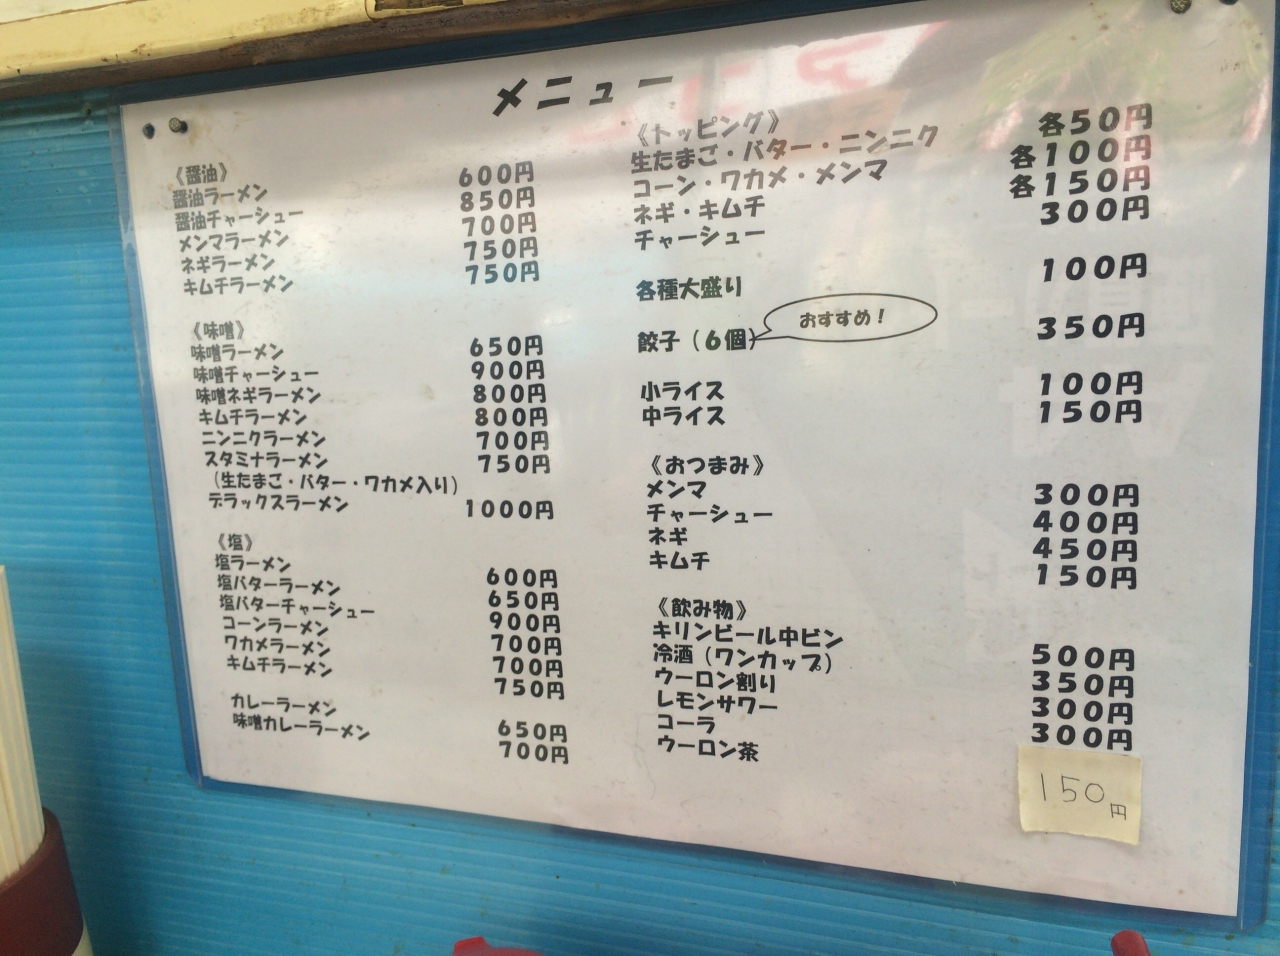 メニュー
《醤油》
醤油ラーメン 600円
醤油チャーシュー 850円
メンマラーメン 700円
ネギラーメン 750円
キムチラーメン 750円
《味噌》
味噌ラーメン 650円
味噌チャーシュー 900円
味噌ネギラーメン 800円
キムチラーメン 800円
ニンニクラーメン 700円
スタミナラーメン 750円
(生たまご・バター・ワカメ入り)
デラックスラーメン 1000円
《塩》
塩ラーメン 600円
塩バターラーメン 650円
塩バターチャーシュー 900円
コーンラーメン 700円
ワカメラーメン 700円
キムチラーメン 750円
カレーラーメン 650円
味噌カレーラーメン 700円
《トッピング》
生たまご・バター・ニンニク 各50円
コーン・ワカメ・メンマ 各100円
ネギ・キムチ 各150円
チャーシュー 300円
各種大盛り 100円
餃子(6個) おすすめ! 350円
小ライス 100円
中ライス 150円
《おつまみ》
メンマ 300円
チャーシュー 400円
ネギ 450円
キムチ 150円
《飲み物》
キリンビール中ビン 500円
冷酒(ワンカップ) 350円
ウーロン割り 300円
レモンサワー 300円
コーラ
ウーロン茶
150円